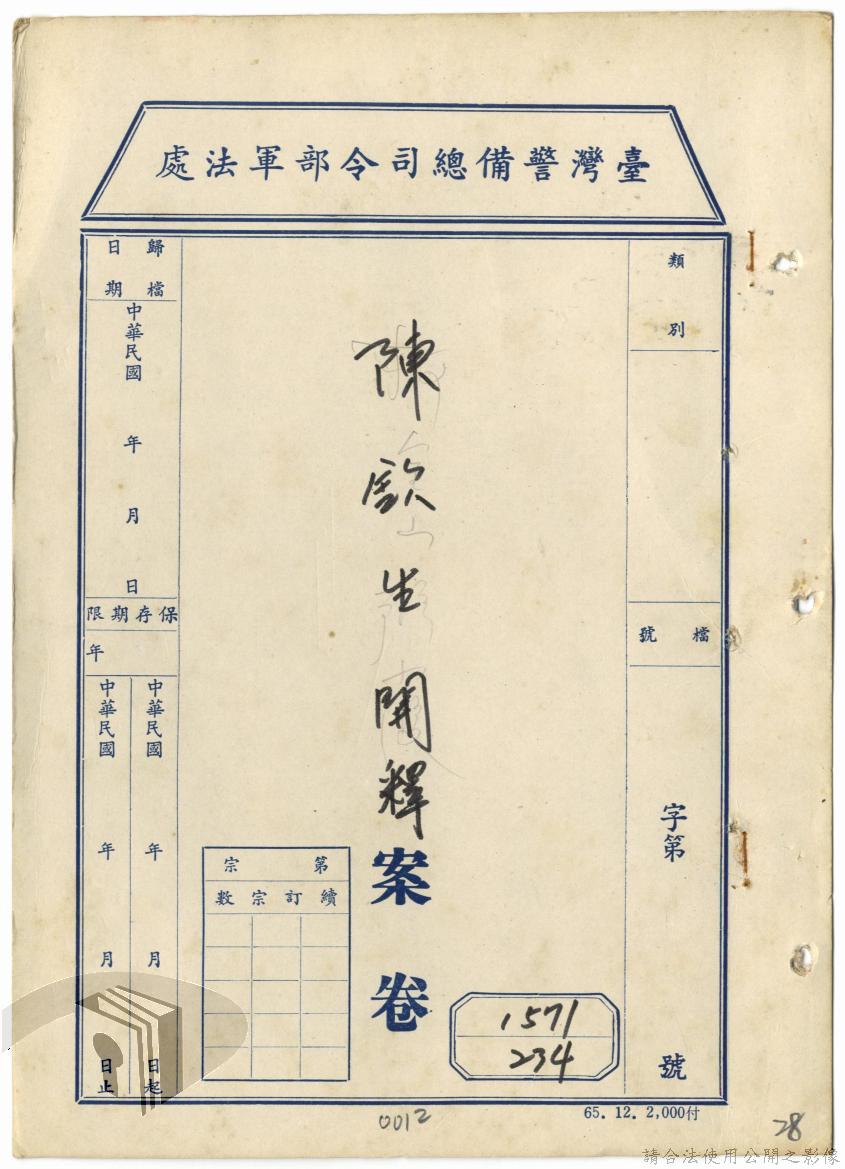 臺灣警備總司令部軍法處
類別
檔號
字第
號
陳欽生開釋案卷
第宗
續訂宗數
1571
234
歸檔日期
中華民國 年 月 日
保存期限
年
中華民國 年 月 日起
中華民國 年 月 日止
65. 12. 2,000付
0012
28
請合法使用公開之影像